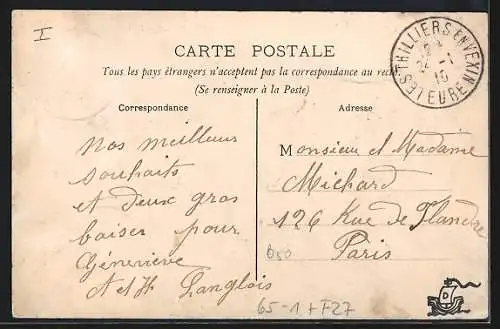 I
CARTE POSTALE
Tous les pays étrangers n'acceptent pas la correspondance au rec
(Se renseigner à la Poste)
LES THILLIERS-EN-VEXIN
24 -1
10
EURE
Correspondance
Nos meilleurs
souhaits
et deux gros
baiser pour
Géneviève
A et H Langlois
Adresse
Monsieur et Madame
Michard
126 Rue de Flandre
Paris
65-1+F27